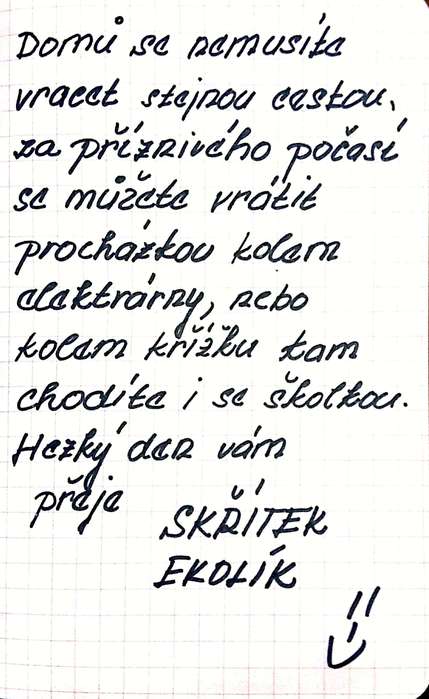 Domů se nemusíte
vracet stejnou cestou,
za příznivého počasí
se můžete vrátit
procházkou kolem
elektrárny, nebo
kolem křížku tam
chodíte i se školkou.
Hezký den vám
přeje
SKŘÍTEK
EKOLÍK